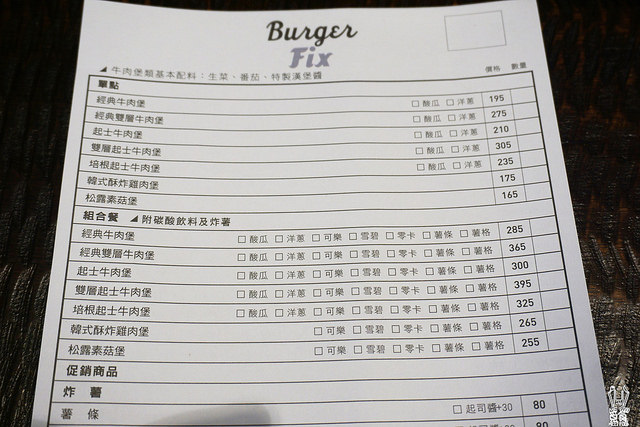 Burger
Fix
價格 數量
◢ 牛肉堡類基本配料：生菜、番茄、特製漢堡醬
單點
經典牛肉堡 □ 酸瓜 □ 洋蔥 195
經典雙層牛肉堡 □ 酸瓜 □ 洋蔥 275
起士牛肉堡 □ 酸瓜 □ 洋蔥 210
雙層起士牛肉堡 □ 酸瓜 □ 洋蔥 305
培根起士牛肉堡 □ 酸瓜 □ 洋蔥 235
韓式酥炸雞肉堡 175
松露素菇堡 165
組合餐 ◢ 附碳酸飲料及炸薯
經典牛肉堡 □ 酸瓜 □ 洋蔥 □ 可樂 □ 雪碧 □ 零卡 □ 薯條 □ 薯格 285
經典雙層牛肉堡 □ 酸瓜 □ 洋蔥 □ 可樂 □ 雪碧 □ 零卡 □ 薯條 □ 薯格 365
起士牛肉堡 □ 酸瓜 □ 洋蔥 □ 可樂 □ 雪碧 □ 零卡 □ 薯條 □ 薯格 300
雙層起士牛肉堡 □ 酸瓜 □ 洋蔥 □ 可樂 □ 雪碧 □ 零卡 □ 薯條 □ 薯格 395
培根起士牛肉堡 □ 酸瓜 □ 洋蔥 □ 可樂 □ 雪碧 □ 零卡 □ 薯條 □ 薯格 325
韓式酥炸雞肉堡 □ 可樂 □ 雪碧 □ 零卡 □ 薯條 □ 薯格 265
松露素菇堡 □ 可樂 □ 雪碧 □ 零卡 □ 薯條 □ 薯格 255
促銷商品
炸 薯
薯 條 □ 起司醬+30 80